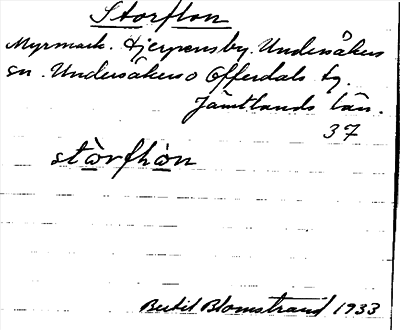 Storflon
Myrmark. Hjerpensby. Undersåkers
sn. Undersåkers o Offerdals tg.
Jämtlands län.
37
stòrfhòn
Bertil Blomstrand 1933